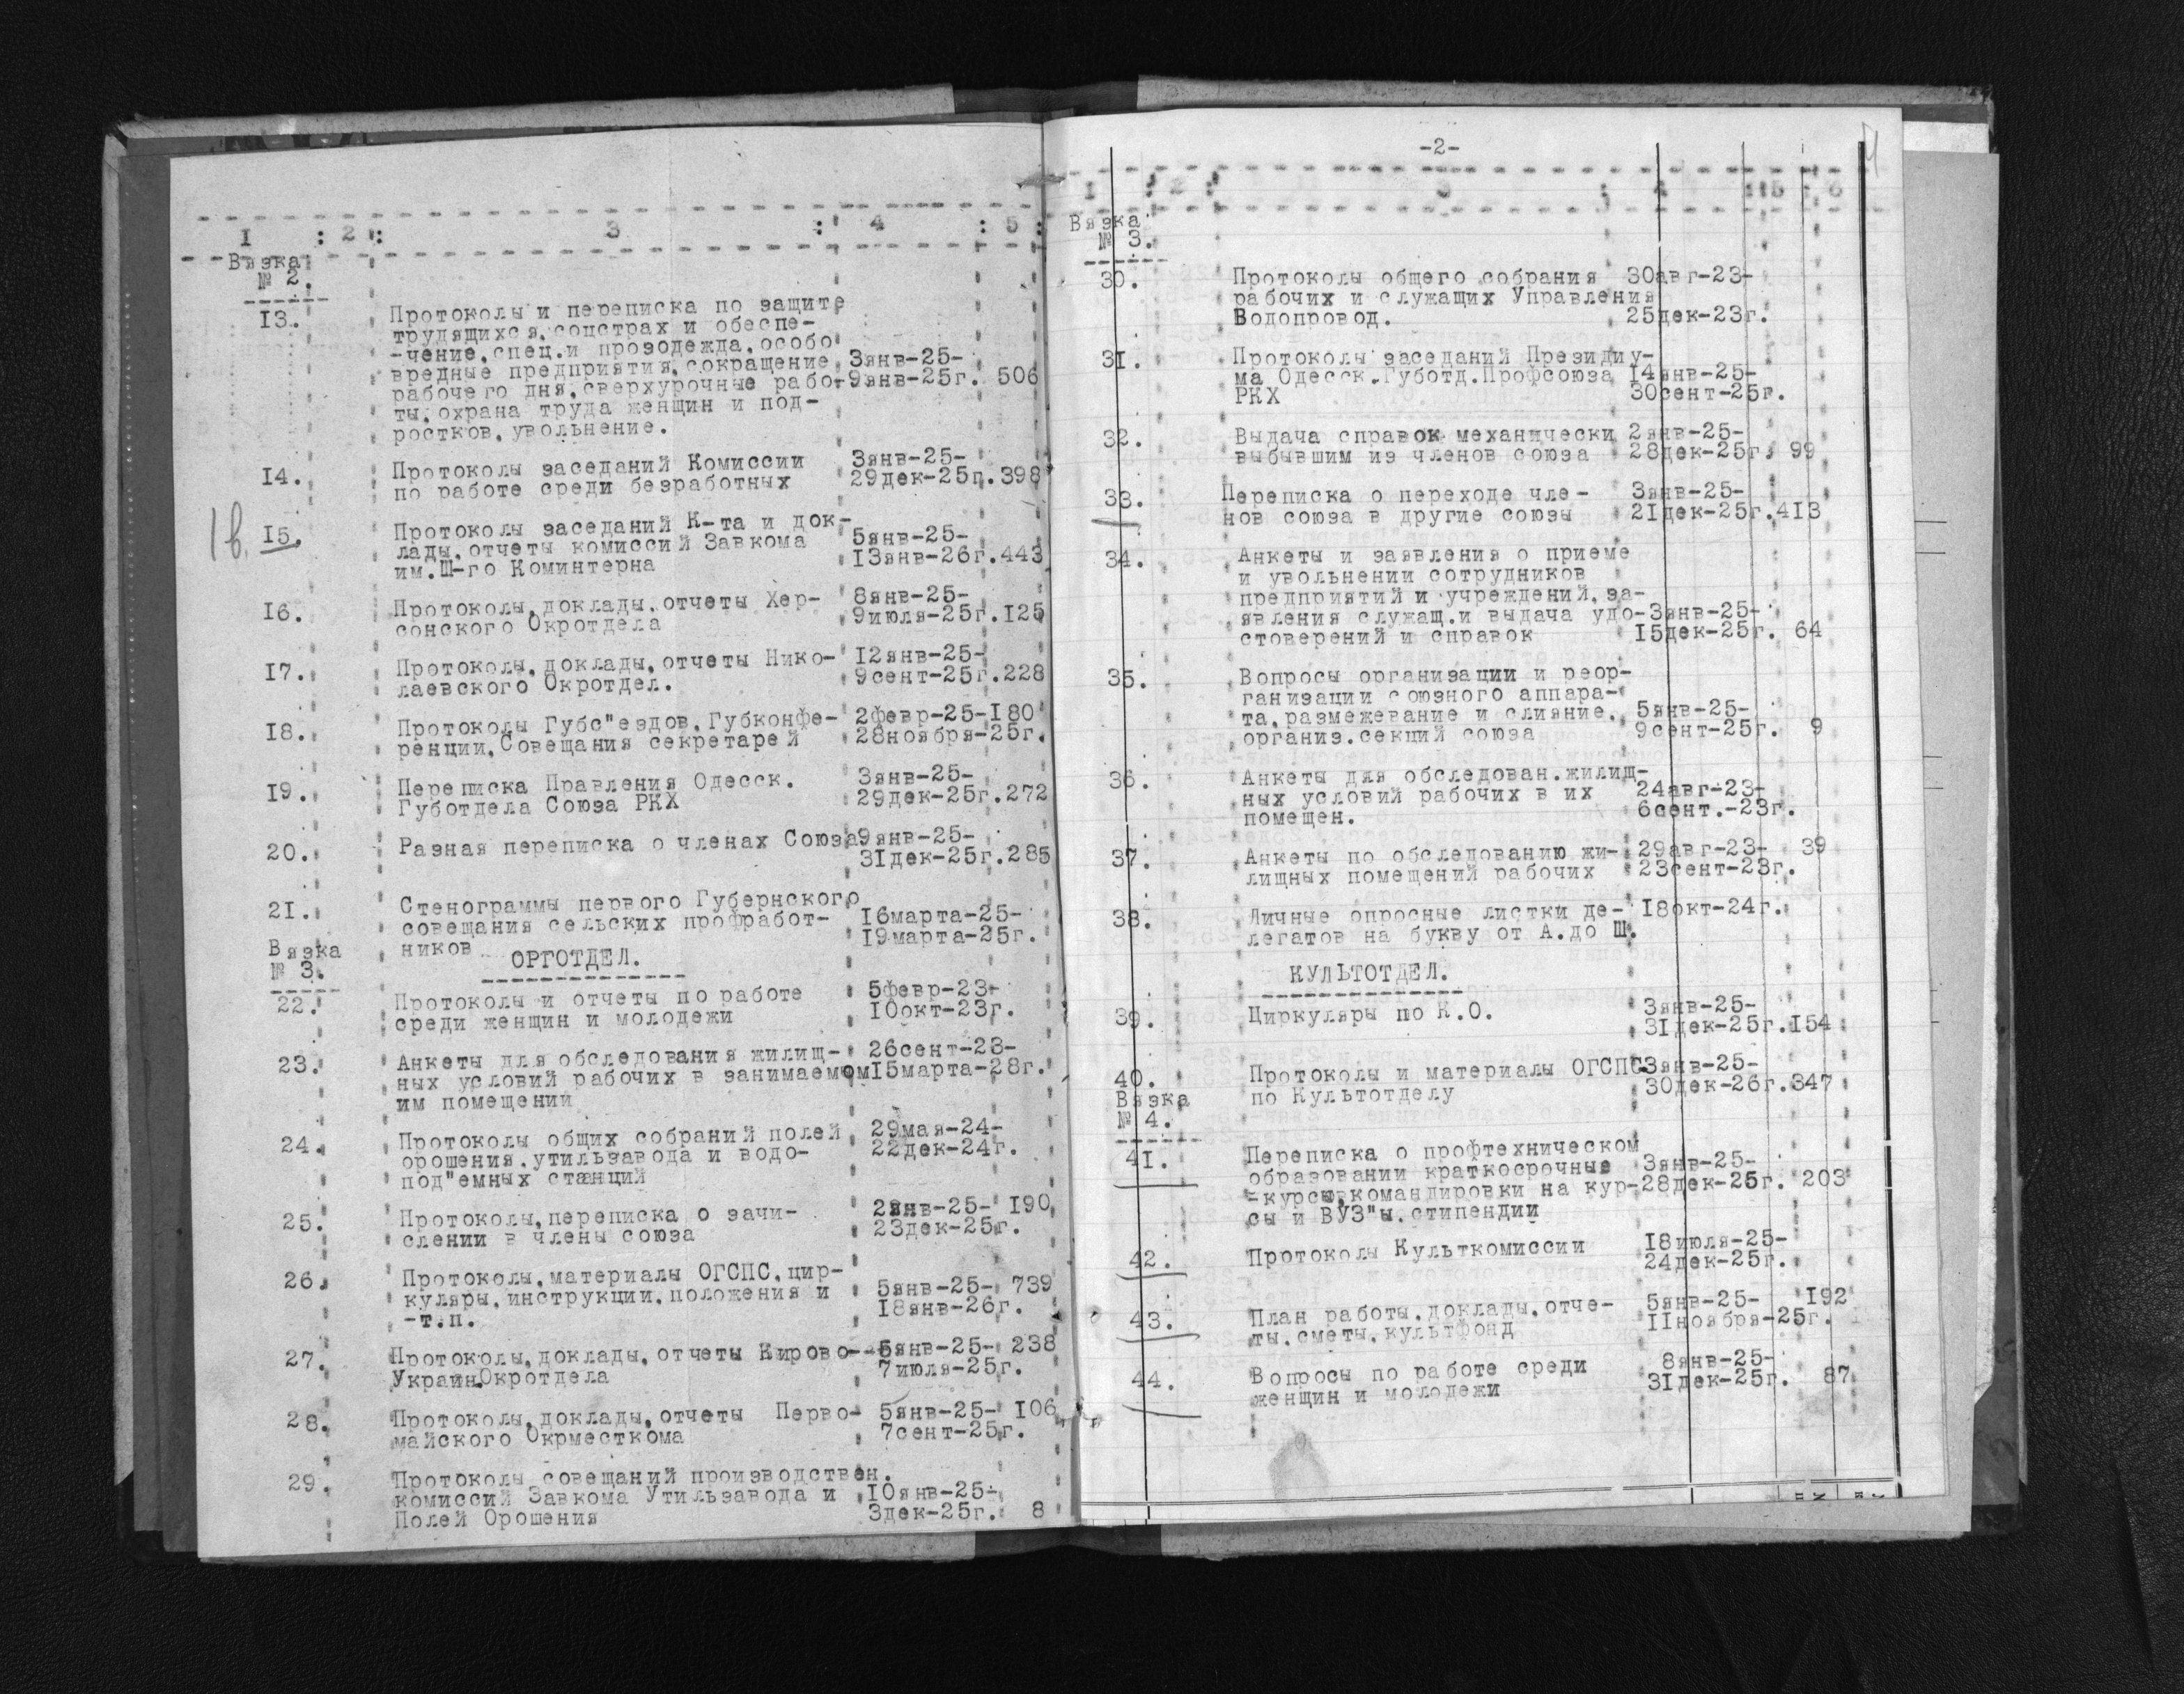 I : 2 : 3 : 4 : 5 :
Вязка
№ 2.
I3. Протоколы и переписка по защите
трудящихся,соцстрах и обеспе-
-чение,спец.и прозодежда,особо
вредные предприятия,сокращение 3янв-25-
рабочего дня,сверхурочные рабо- 9янв-25г. 506
ты,охрана труда женщин и под-
ростков,увольнение.
I4. Протоколы заседаний Комиссии 3янв-25-
по работе среди безработных 29дек-25г.398
Iв. I5. Протоколы заседаний К-та и док-
лады,отчеты комиссий Завкома 5янв-25-
им.Ш-го Коминтерна I3янв-26г.443
I6. Протоколы,доклады,отчеты Хер- 8янв-25-
сонского Окротдела 9июля-25г.I25
I7. Протоколы,доклады,отчеты Нико- I2янв-25-
лаевского Окротдел. 9сент-25г.228
I8. Протоколы Губс"ездов,Губконфе- 2февр-25-I80
ренции,Совещания секретарей 28ноября-25г.
I9. Переписка Правления Одесск. 3янв-25-
Губотдела Союза РКХ 29дек-25г.272
20. Разная переписка о членах Союза 9янв-25-
3Iдек-25г.285
2I. Стенограммы первого Губернского
совещания сельских профработ- I6марта-25-
ников I9марта-25г.
Вязка
№ 3.
ОРГОТДЕЛ.
22. Протоколы и отчеты по работе 5февр-23-
среди женщин и молодежи I0окт-23г.
23. Анкеты для обследования жилищ- 26сент-23-
ных условий рабочих в занимаемом I5марта-28г.
им помещении
24. Протоколы общих собраний полей 29мая-24-
орошения,утильзавода и водо- 22дек-24г.
под"емных станций
25. Протоколы,переписка о зачи- 2янв-25- I90
слении в члены союза 23дек-25г.
26. Протоколы,материалы ОГСПС,цир-
куляры,инструкции,положения и 5янв-25- 739
-т.п. I8янв-26г.
27. Протоколы,доклады,отчеты Кирово- 5янв-25- 238
Украин.Окротдела 7июля-25г.
28. Протоколы,доклады,отчеты Перво- 5янв-25- I06
майского Окрместкома 7сент-25г.
29. Протоколы совещаний производствен.
комиссий Завкома Утильзавода и I0янв-25-
Полей Орошения 3дек-25г. 8
-2-
I : 2 : 3 : 4 : 5 : 6
Вязка
№ 3.
30. Протоколы общего собрания 30авг-23-
рабочих и служащих Управления
Водопровод. 25дек-23г.
3I. Протоколы заседаний Президиу-
ма Одесск.Губотд.Профсоюза I4янв-25-
РКХ 30сент-25г.
32. Выдача справок механически 2янв-25-
выбывшим из членов союза 28дек-25г. 99
33. Переписка о переходе чле- 3янв-25-
нов союза в другие союзы 2Iдек-25г.4I3
34. Анкеты и заявления о приеме
и увольнении сотрудников
предприятий и учреждений,за-
явления служащ.и выдача удо- 3янв-25-
стоверений и справок I5дек-25г. 64
35. Вопросы организации и реор-
ганизации союзного аппара-
та,размежевание и слияние, 5янв-25-
организ.секций союза 9сент-25г. 9
36. Анкеты для обследован.жилищ-
ных условий рабочих в их 24авг-23-
помещен. 6сент.-23г.
37. Анкеты по обследованию жи- 29авг-23- 39
лищных помещений рабочих 23сент-23г.
38. Личные опросные листки де- I8окт-24г.
легатов на букву от А.до Ш.
КУЛЬТОТДЕЛ.
39. Циркуляры по К.О. 3янв-25-
3Iдек-25г.I54
40. Протоколы и материалы ОГСПС 3янв-25-
по Культотделу 30дек-26г.347
Вязка
№ 4.
4I. Переписка о профтехническом
образовании краткосрочные 3янв-25-
-курсы,командировки на кур- 28дек-25г. 203
сы и ВУЗ"ы,стипендии
42. Протоколы Культкомиссии I8июля-25-
24дек-25г.
43. План работы,доклады,отче- 5янв-25- I92
ты,сметы,культфонд IIноября-25г.
44. Вопросы по работе среди 8янв-25-
женщин и молодежи 3Iдек-25г. 87